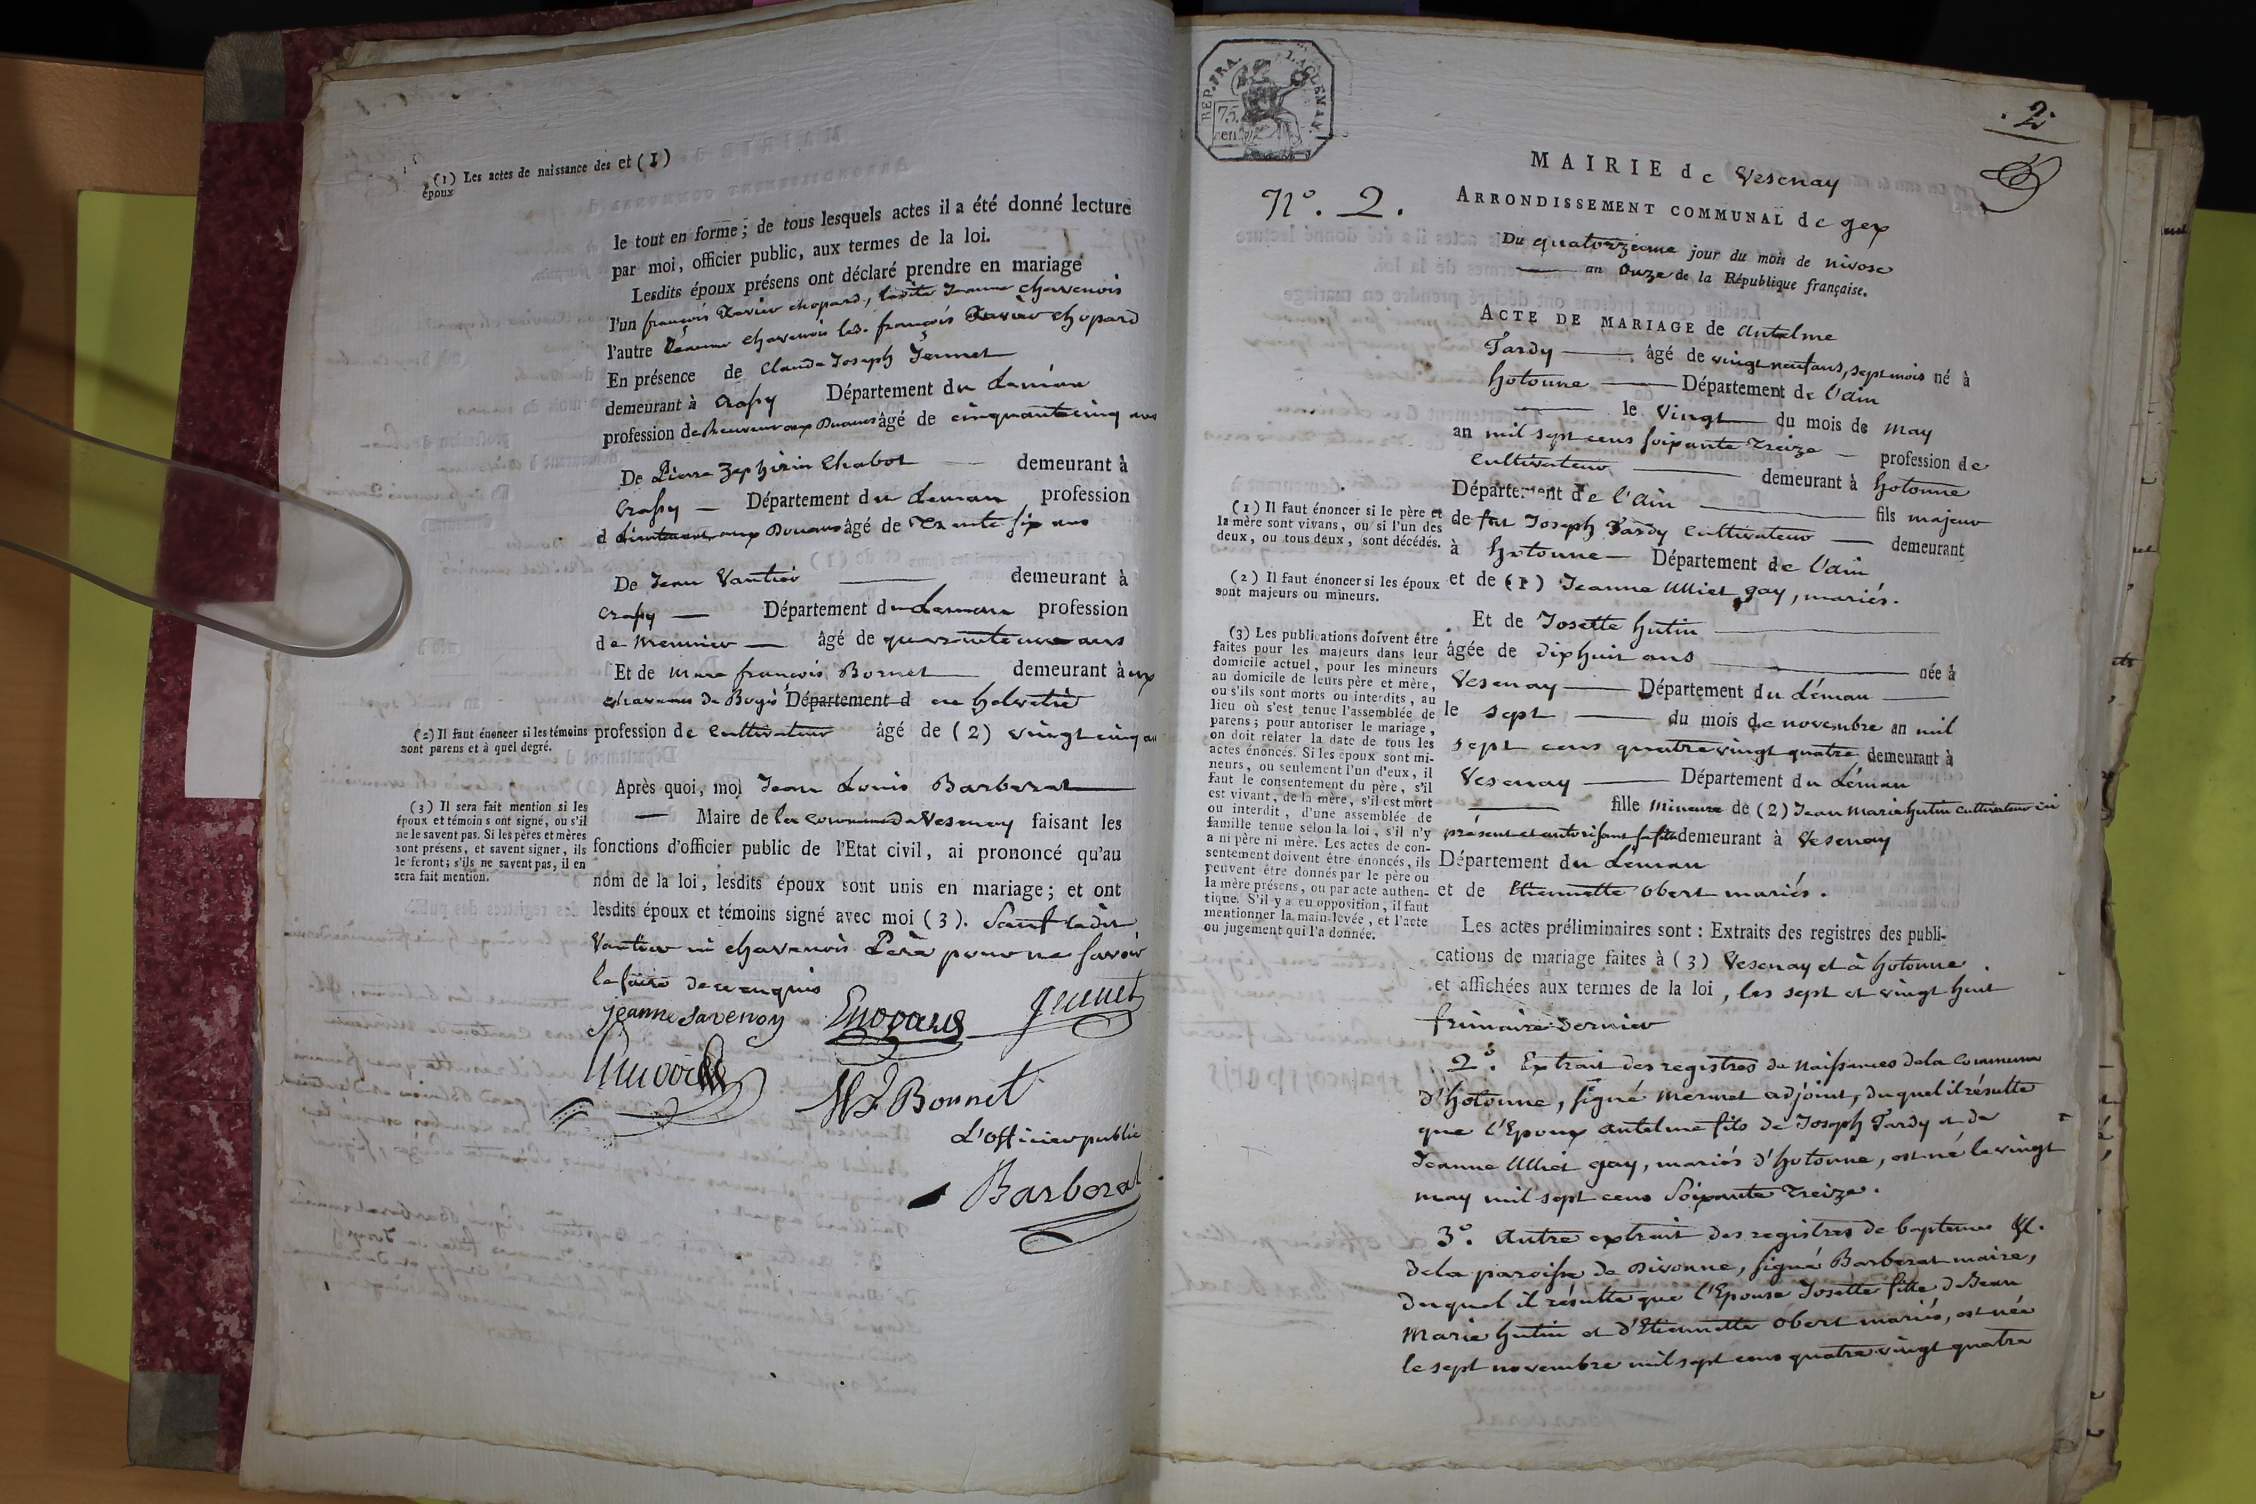 (1) Les actes de naissance des
époux
et (1)
le tout en forme ; de tous lesquels actes il a été donné lecture
par moi, officier public, aux termes de la loi.
Lesdits époux présens ont déclaré prendre en mariage
l'un françois Xavier chopard, ladite Jeanne chavenois
l'autre Jeanne chavenois led. françois Xavier chopard
En présence de Claude Joseph Jennet
demeurant à Crassy Département du Leman
profession de Receveur aux Douanes âgé de cinquante cinq ans
De Pierre Zephirin Chabot demeurant à
Crassy Département du Leman profession
d Lieutenant aux Douanes âgé de Trente six ans
De Jean Vantier demeurant à
Crassy Département du Leman profession
de Meunier âgé de quarante ans
Et de Marc françois Bornet demeurant à aux
chavanes de Bogis Département d en helvetie
profession de Cultivateur âgé de (2) vingt cinq ans
(2) Il faut énoncer si les témoins
sont parens et à quel degré.
Après quoi, moi Jean Louis Barberat
Maire de la commune de Vesenay faisant les
fonctions d'officier public de l'Etat civil, ai prononcé qu'au
nom de la loi, lesdits époux sont unis en mariage ; et ont
lesdits époux et témoins signé avec moi (3). Sauf ledit
Vantier ni chavenois Père pour ne savoir
le faire de ce enquis
(3) Il sera fait mention si les
époux et témoins ont signé, ou s'il
ne le savent pas. Si les pères et mères
sont présens, et savent signer, ils
le feront ; s'ils ne savent pas, il en
sera fait mention.
jeanne Savenoy
Jennet
M F Bonnet
L'officier public
Barberat
REP. FRA.
75.
cen.
.2.
MAIRIE de Vesenay
N°. 2.
ARRONDISSEMENT COMMUNAL de gex
Du quatorzieme jour du mois de nivose
an Onze de la République française.
ACTE DE MARIAGE de Antelme
Tardy âgé de vingt neuf ans, sept mois né à
hotonne Département de l'ain
le Vingt du mois de May
an mil sept cens soixante Treize profession de
Cultivateur demeurant à hotonne
Département de l'ain fils majeur
de feu Joseph Tardy Cultivateur demeurant
à hotonne Département de l'ain
et de (1) Jeanne Ulliet gay, mariés.
(1) Il faut énoncer si le père et
la mère sont vivans, ou si l'un des
deux, ou tous deux, sont décédés.
(2) Il faut énoncer si les époux
sont majeurs ou mineurs.
Et de Josette hutin
âgée de dix huit ans née à
Vesenay Département du Léman
le sept du mois de novembre an mil
sept cens quatre vingt quatre demeurant à
Vesenay Département du Léman
fille Mineure de (2) Jean Marie hutin Cultivateur ici
présent et autorisant sa fille demeurant à Vesenay
Département du Leman
et de Etiennette Obert mariés.
(3) Les publications doivent être
faites pour les majeurs dans leur
domicile actuel, pour les mineurs
au domicile de leurs père et mère,
ou s'ils sont morts ou interdits, au
lieu où s'est tenue l'assemblée de
parens ; pour autoriser le mariage,
on doit relater la date de tous les
actes énoncés. Si les époux sont mi-
neurs, ou seulement l'un d'eux, il
faut le consentement du père, s'il
est vivant, de la mère, s'il est mort
ou interdit, d'une assemblée de
famille tenue selon la loi, s'il n'y
a ni père ni mère. Les actes de con-
sentement doivent être énoncés, ils
peuvent être donnés par le père ou
la mère présens, ou par acte authen-
tique. S'il y a eu opposition, il faut
mentionner la main-levée, et l'acte
ou jugement qui l'a donnée.
Les actes préliminaires sont : Extraits des registres des publi-
cations de mariage faites à (3) Vesenay et à hotonne
et affichées aux termes de la loi, les sept et vingt huit
frimaire dernier
2°. Extrait des registres de Naissances de la Commune
d'hotonne, signé Mermet adjoint, duquel il résulte
que l'Epoux antelme fils de Joseph Tardy et de
Jeanne Ulliet gay, mariés d'hotonne, est né le vingt
may mil sept cens Soixante Treize.
3°. autre extrait des registres de baptemes &c.
de la paroisse de Divonne, signé Barberat maire,
duquel il résulte que l'Epouse Josette fille de Jean
Marie hutin et d'Etiennette Obert mariés, est née
le sept novembre mil sept cens quatre vingt quatre